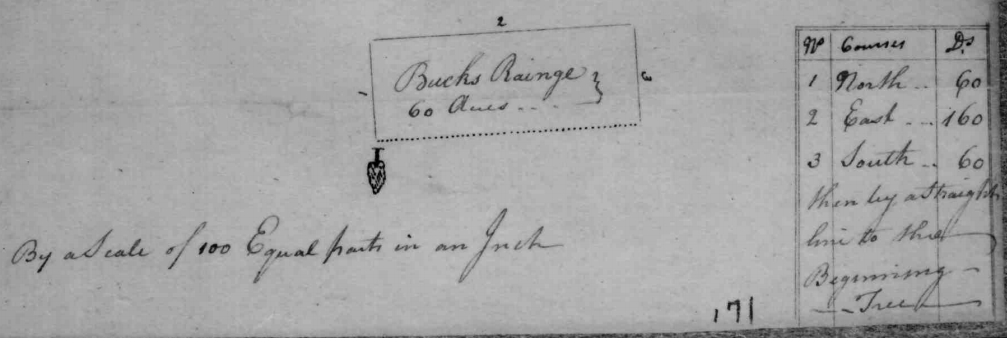 2
1
Bucks Rainge
60 Acres
3
By a Scale of 100 Equal parts in an Inch
171
No Courses Ds
1 North 60
2 East 160
3 South 60
then by a Straight
line to the
Beginning
Tree